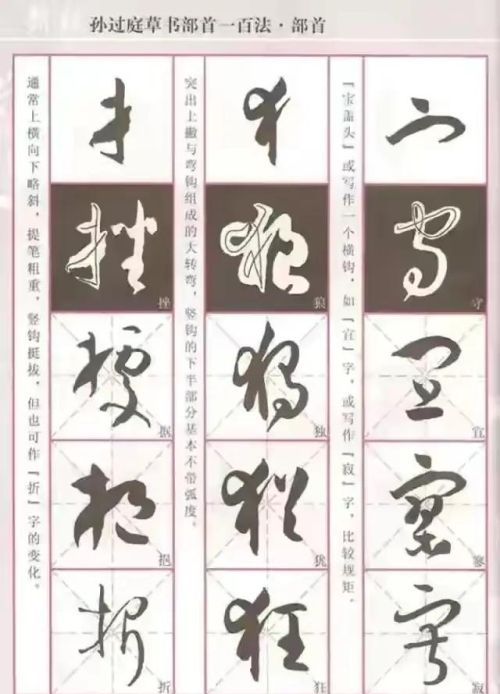 孙过庭草书部首一百法·部首
「宝盖头」或写作一个横钩，如「宣」字，或写作「寂」字，比较规矩。
守
宣
寥
寂
突出上撇与弯钩组成的大转弯，竖钩的下半部分基本不带弧度。
狼
独
犹
狂
通常上横向下略斜，提笔粗重，竖钩挺拔，但也可作「折」字的变化。
挫
据
折